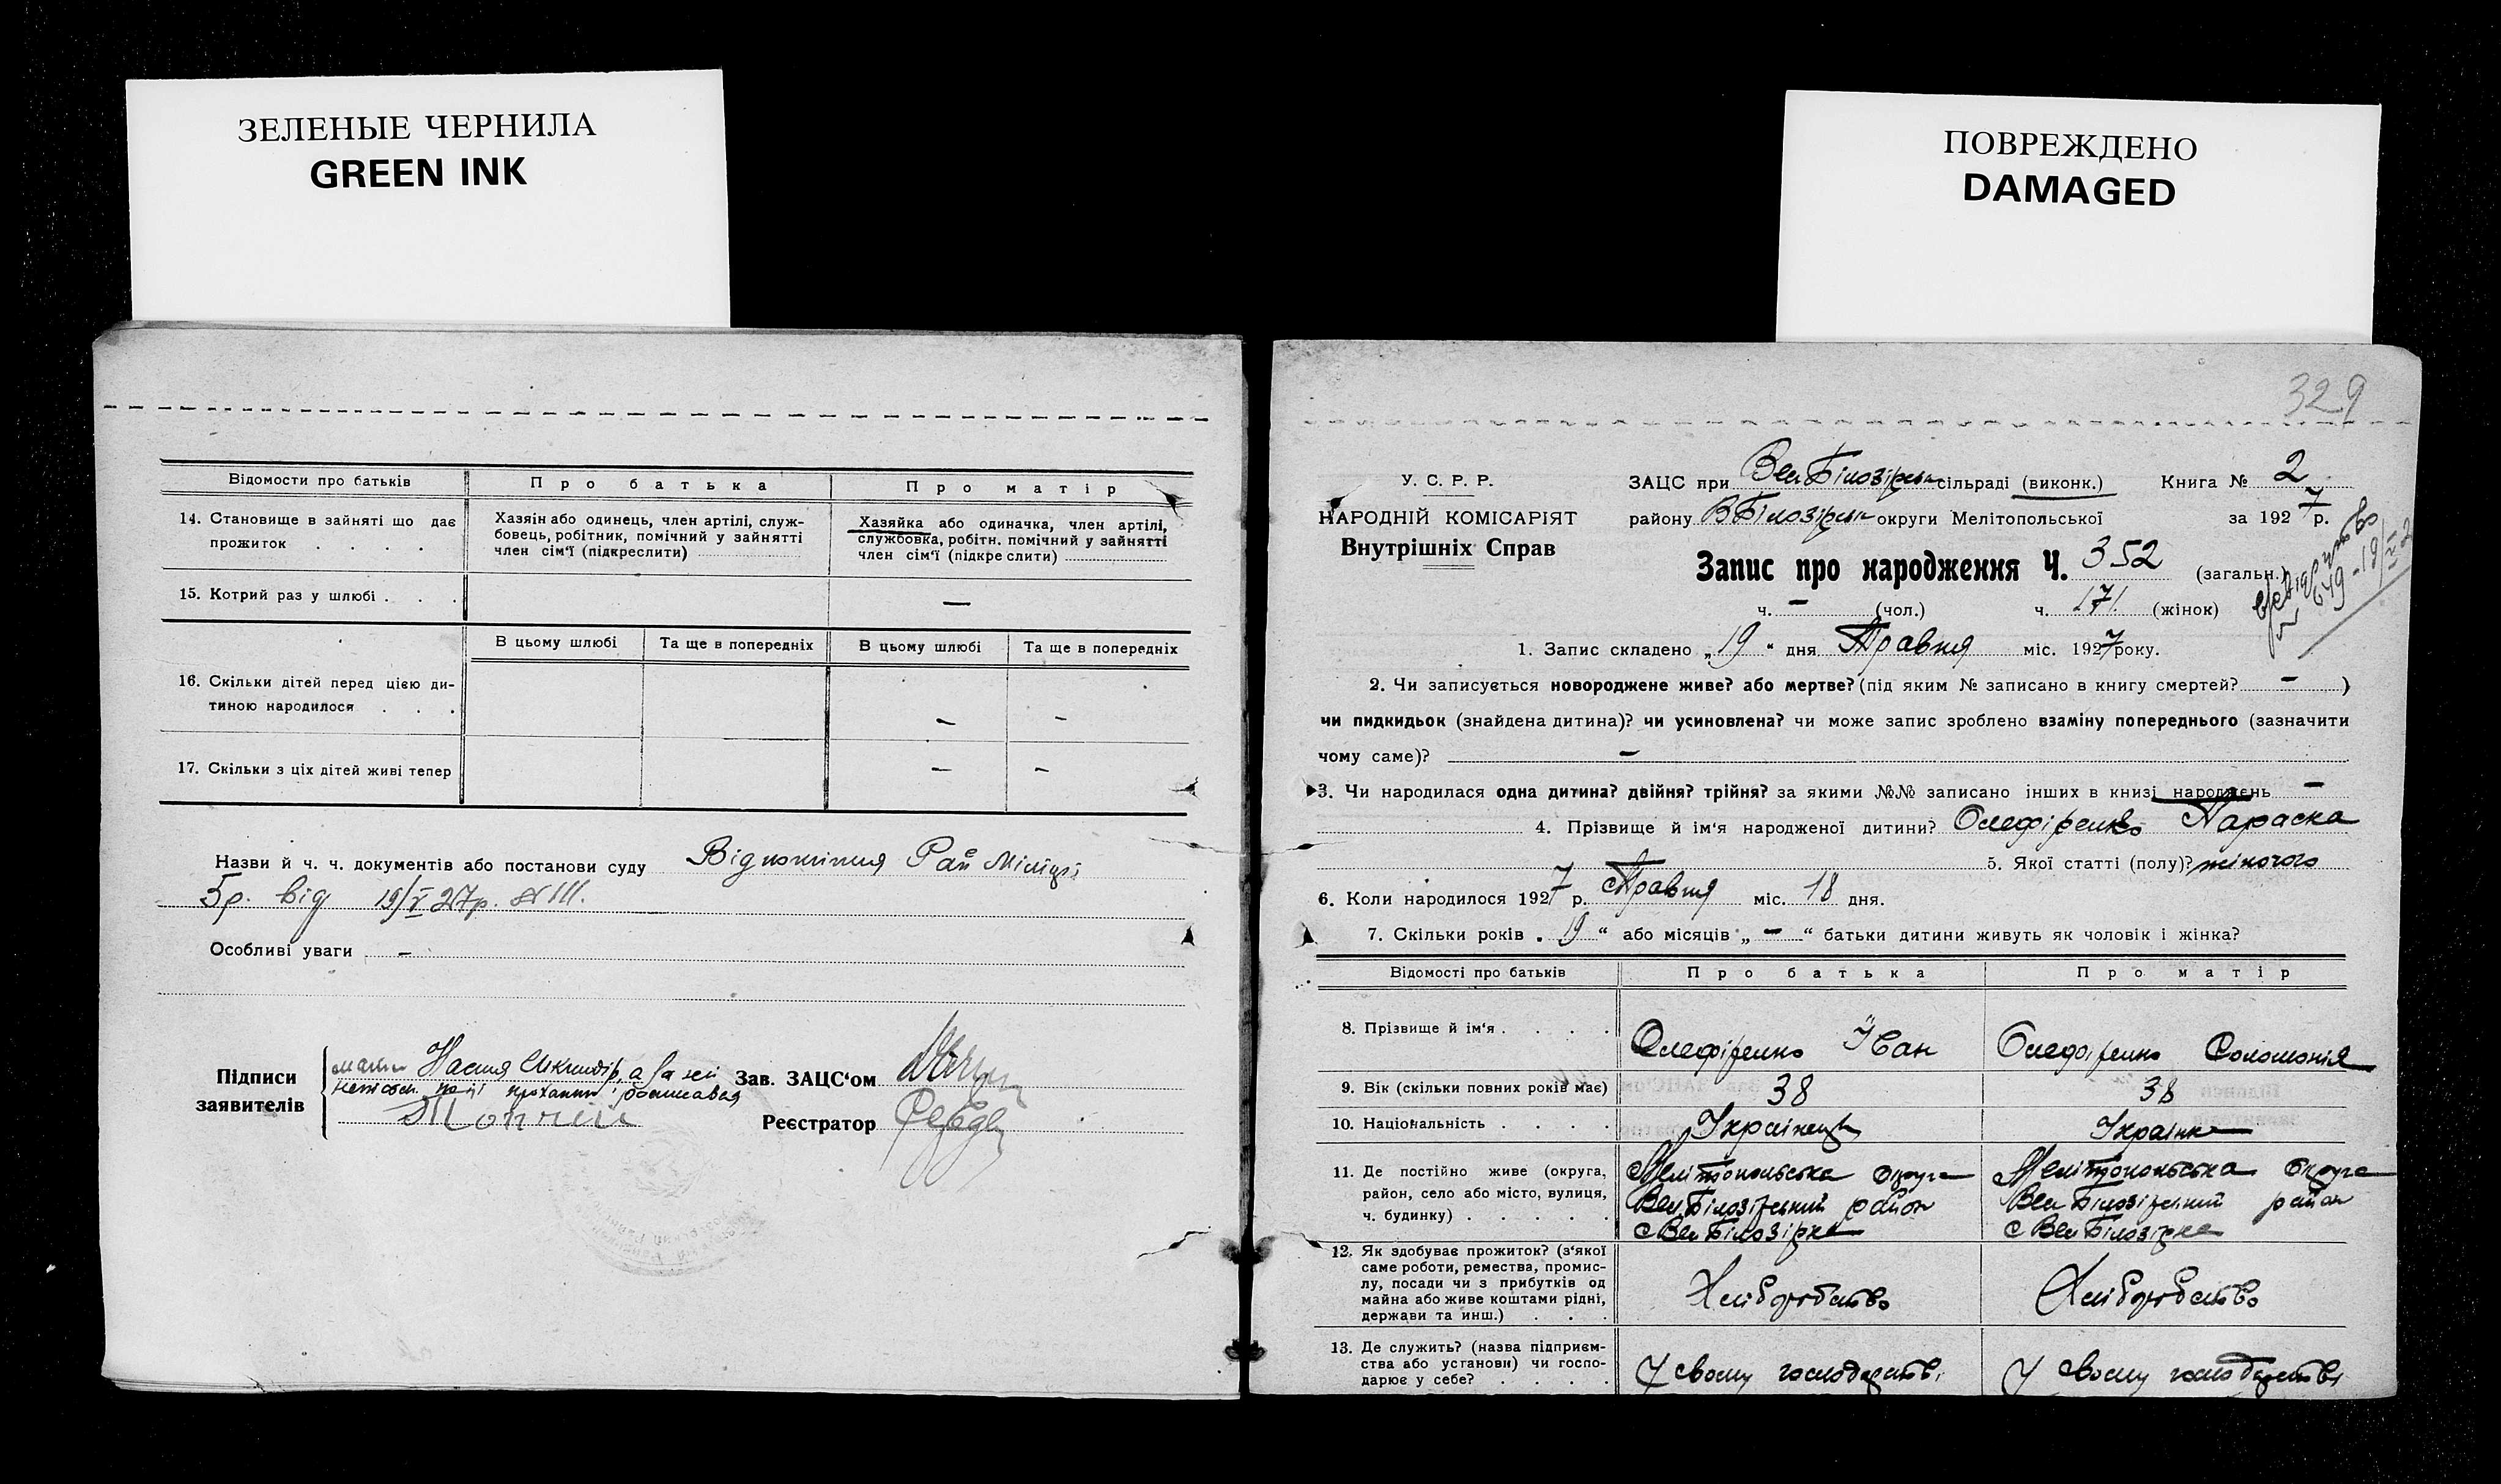 ЗЕЛЕНЫЕ ЧЕРНИЛА
GREEN INK
ПОВРЕЖДЕНО
DAMAGED
Відомости про батьків
Про батька
Про матір
14. Становище в зайняті що дає
прожиток . . . .
Хазяін або одинець, член артілі, служ-
бовець, робітник, помічний у зайнятті
член сім'ї (підкреслити)
Хазяйка або одиначка, член артілі,
службовка, робітн. помічний у зайнятті
член сім'ї (підкреслити)
15. Котрий раз у шлюбі . . . —
В цьому шлюбі
Та ще в попередніх
В цьому шлюбі
Та ще в попередніх
16. Скільки дітей перед цією ди-
тиною народилося . . . — —
17. Скільки з ціх дітей живі тепер — —
Назви й ч. ч. документів або постанови суду Райміліції
5р. від 19/V 27р. № 111.
Особливі уваги —
Підписи
заявителів
Настя а за неї
прохання росписався
Зав. ЗАЦС'ом
Реєстратор
329
У. С. Р. Р.
НАРОДНІЙ КОМІСАРІЯТ
Внутрішніх Справ
ЗАЦС при ВелБілозірськ сільраді (виконк.) Книга № 2
району ВБілозірськ округи Мелітопольської за 1927 р.
Запис про народження Ч. 352 (загальн.)
ч. — (чол.) ч. 171 (жінок)
1. Запис складено „19“ дня Травня міс. 1927 року.
2. Чи записується новороджене живе? або мертве? (під яким № записано в книгу смертей? — )
чи пидкидьок (знайдена дитина)? чи усиновлена? чи може запис зроблено взаміну попереднього (зазначити
чому саме)? —
3. Чи народилася одна дитина? двійня? трійня? за якими №№ записано інших в книзі народжень —
4. Прізвище й ім'я народженої дитини? Олефіренко Параска
5. Якої статті (полу)? жіночого
6. Коли народилося 1927 р. Травня міс. 18 дня.
7. Скільки років „19“ або місяців „—“ батьки дитини живуть як чоловік і жінка?
Відомості про батьків
Про батька
Про матір
8. Прізвище й ім'я . . . .
Олефіренко Іван
Олефіренко Соломонія
9. Вік (скільки повних років має)
38
38
10. Національність . . . .
Українець
Українка
11. Де постійно живе (округа,
район, село або місто, вулиця,
ч. будинку) . . . . .
Мелітопольська округа
ВелБілозірський район
с ВелБілозірка
Мелітопольська округа
ВелБілозірський район
с ВелБілозірка
12. Як здобуває прожиток? (з'якої
саме роботи, ремества, промис-
лу, посади чи з прибутків од
майна або живе коштами рідні,
держави та инш.) . . .
Хліборобство
Хліборобство
13. Де служить? (назва підприєм-
ства або установи) чи госпо-
дарює у себе? . . . .
У свому господарстві
У свому господарстві